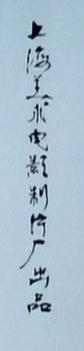 上海美术电影制片厂出品